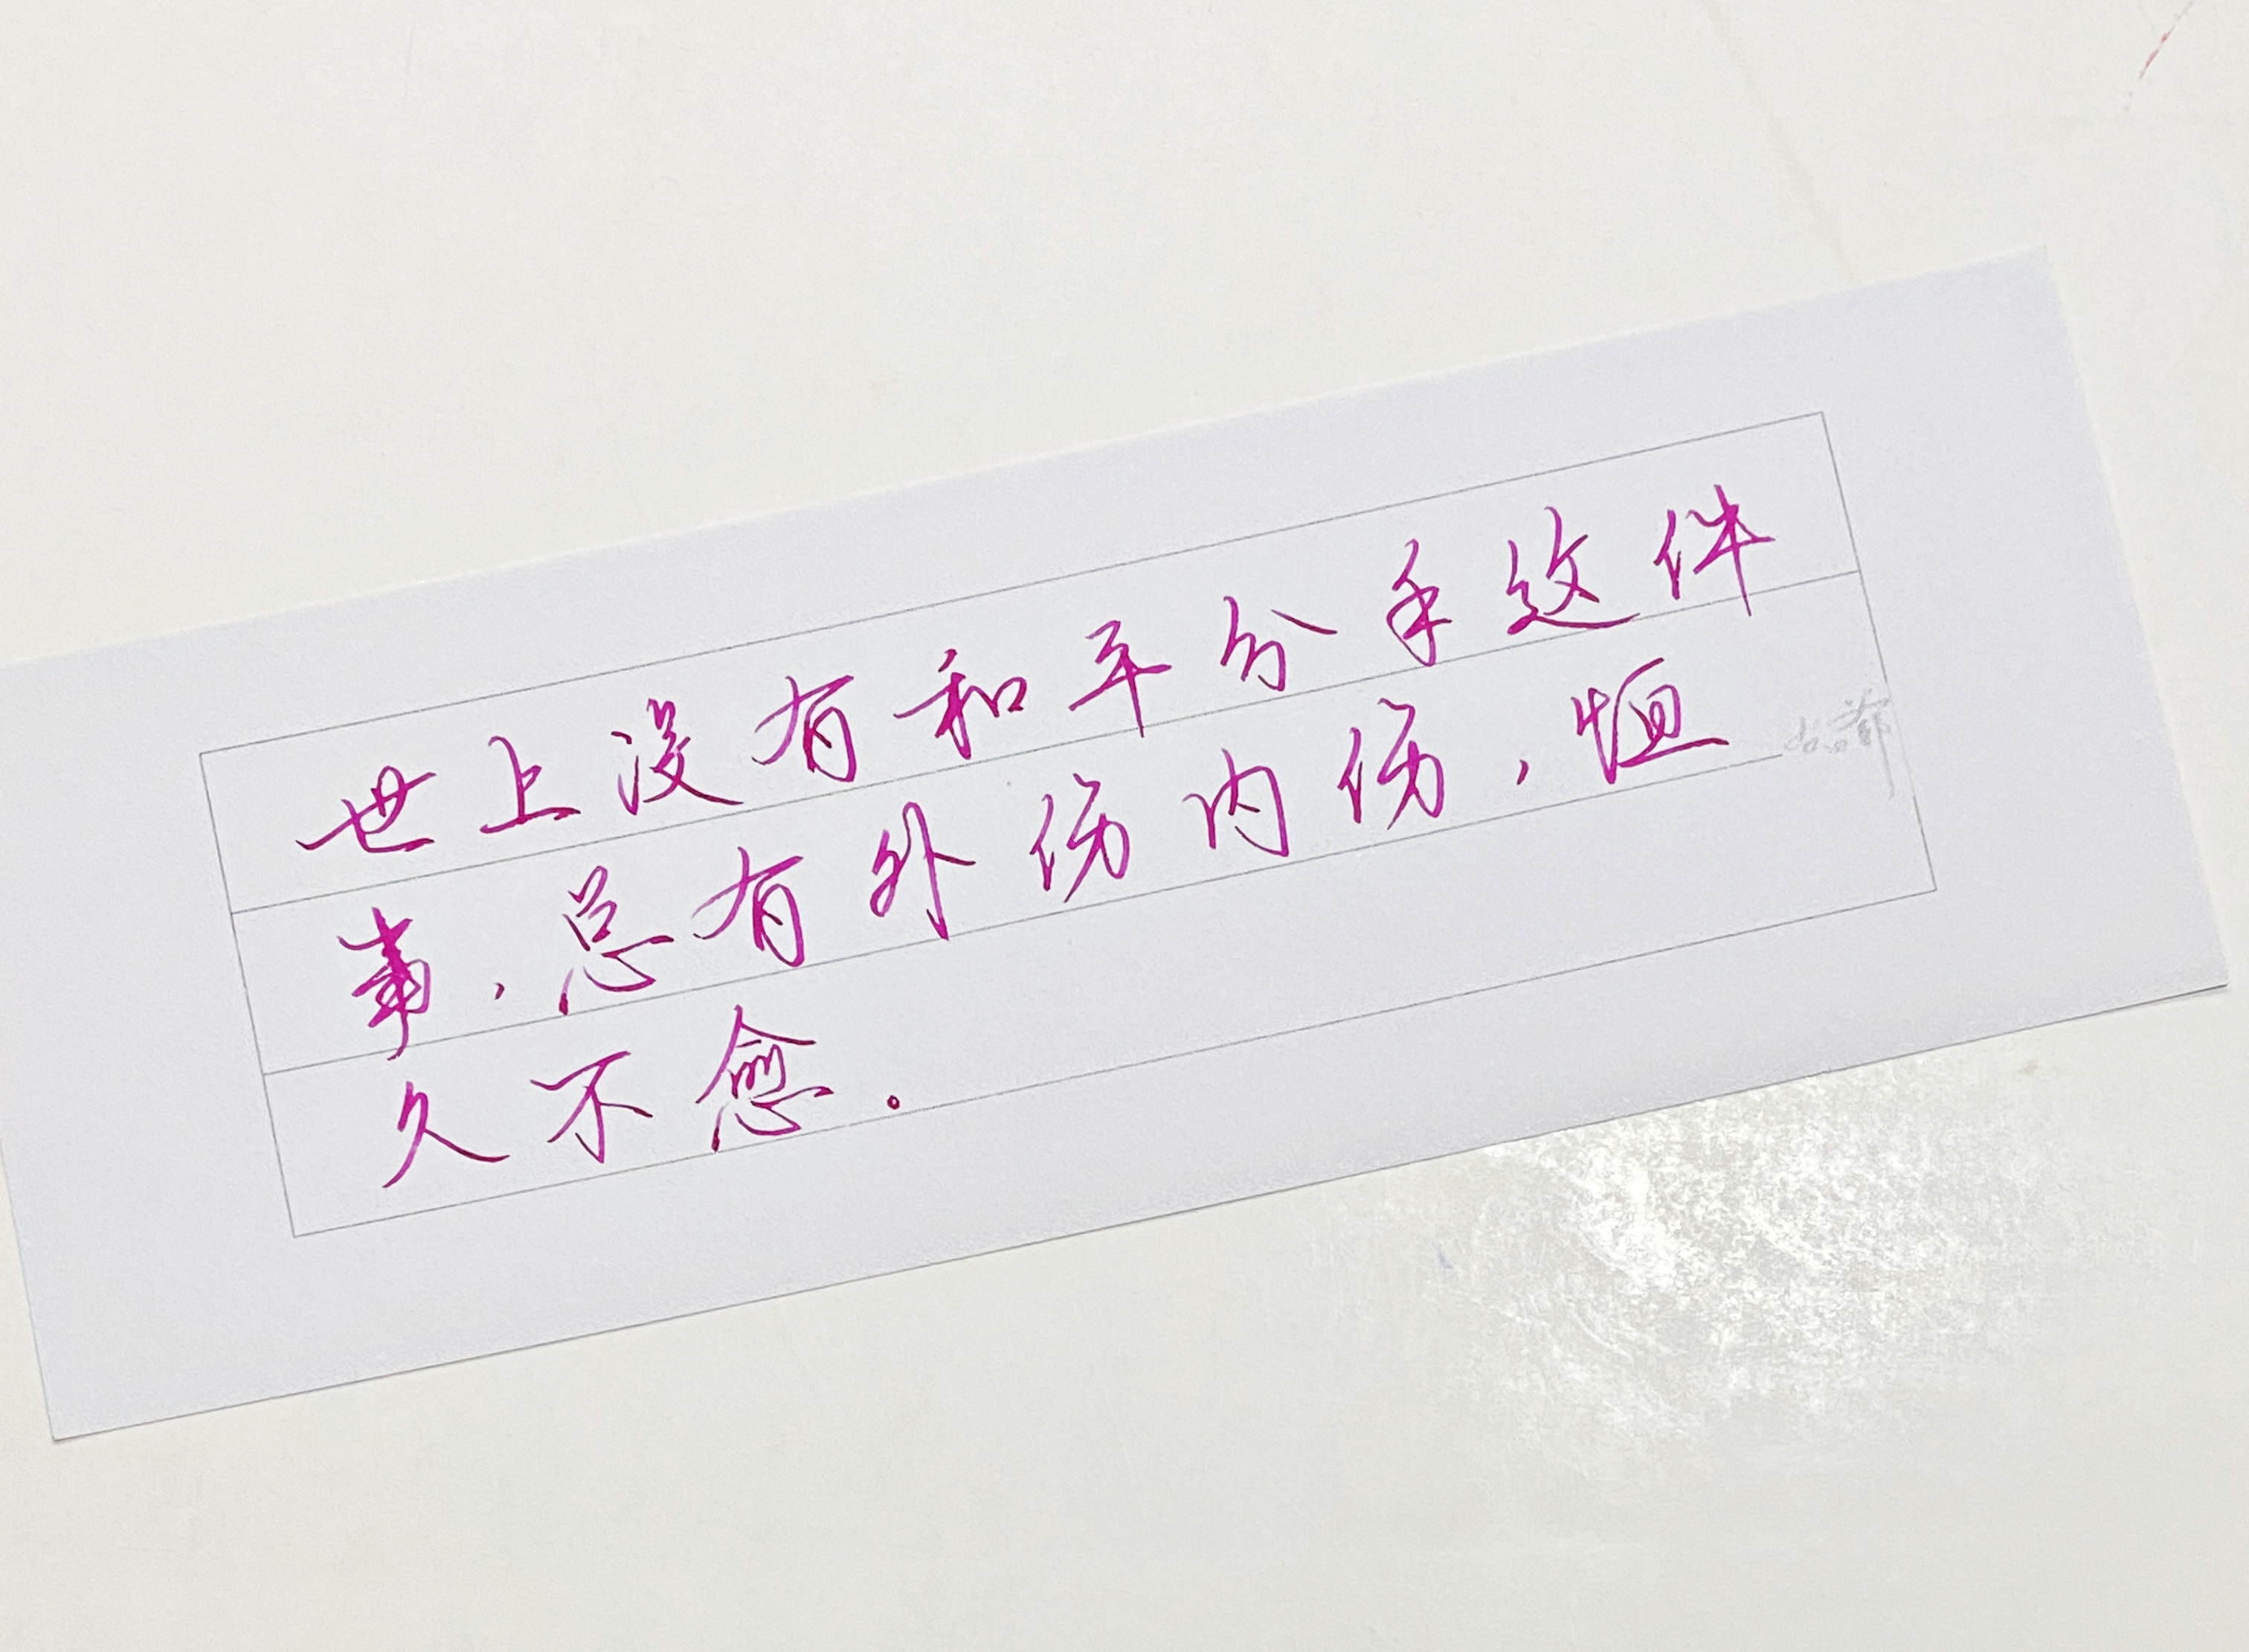 世上没有和平分手这件
事，总有外伤内伤，恒
久不愈。